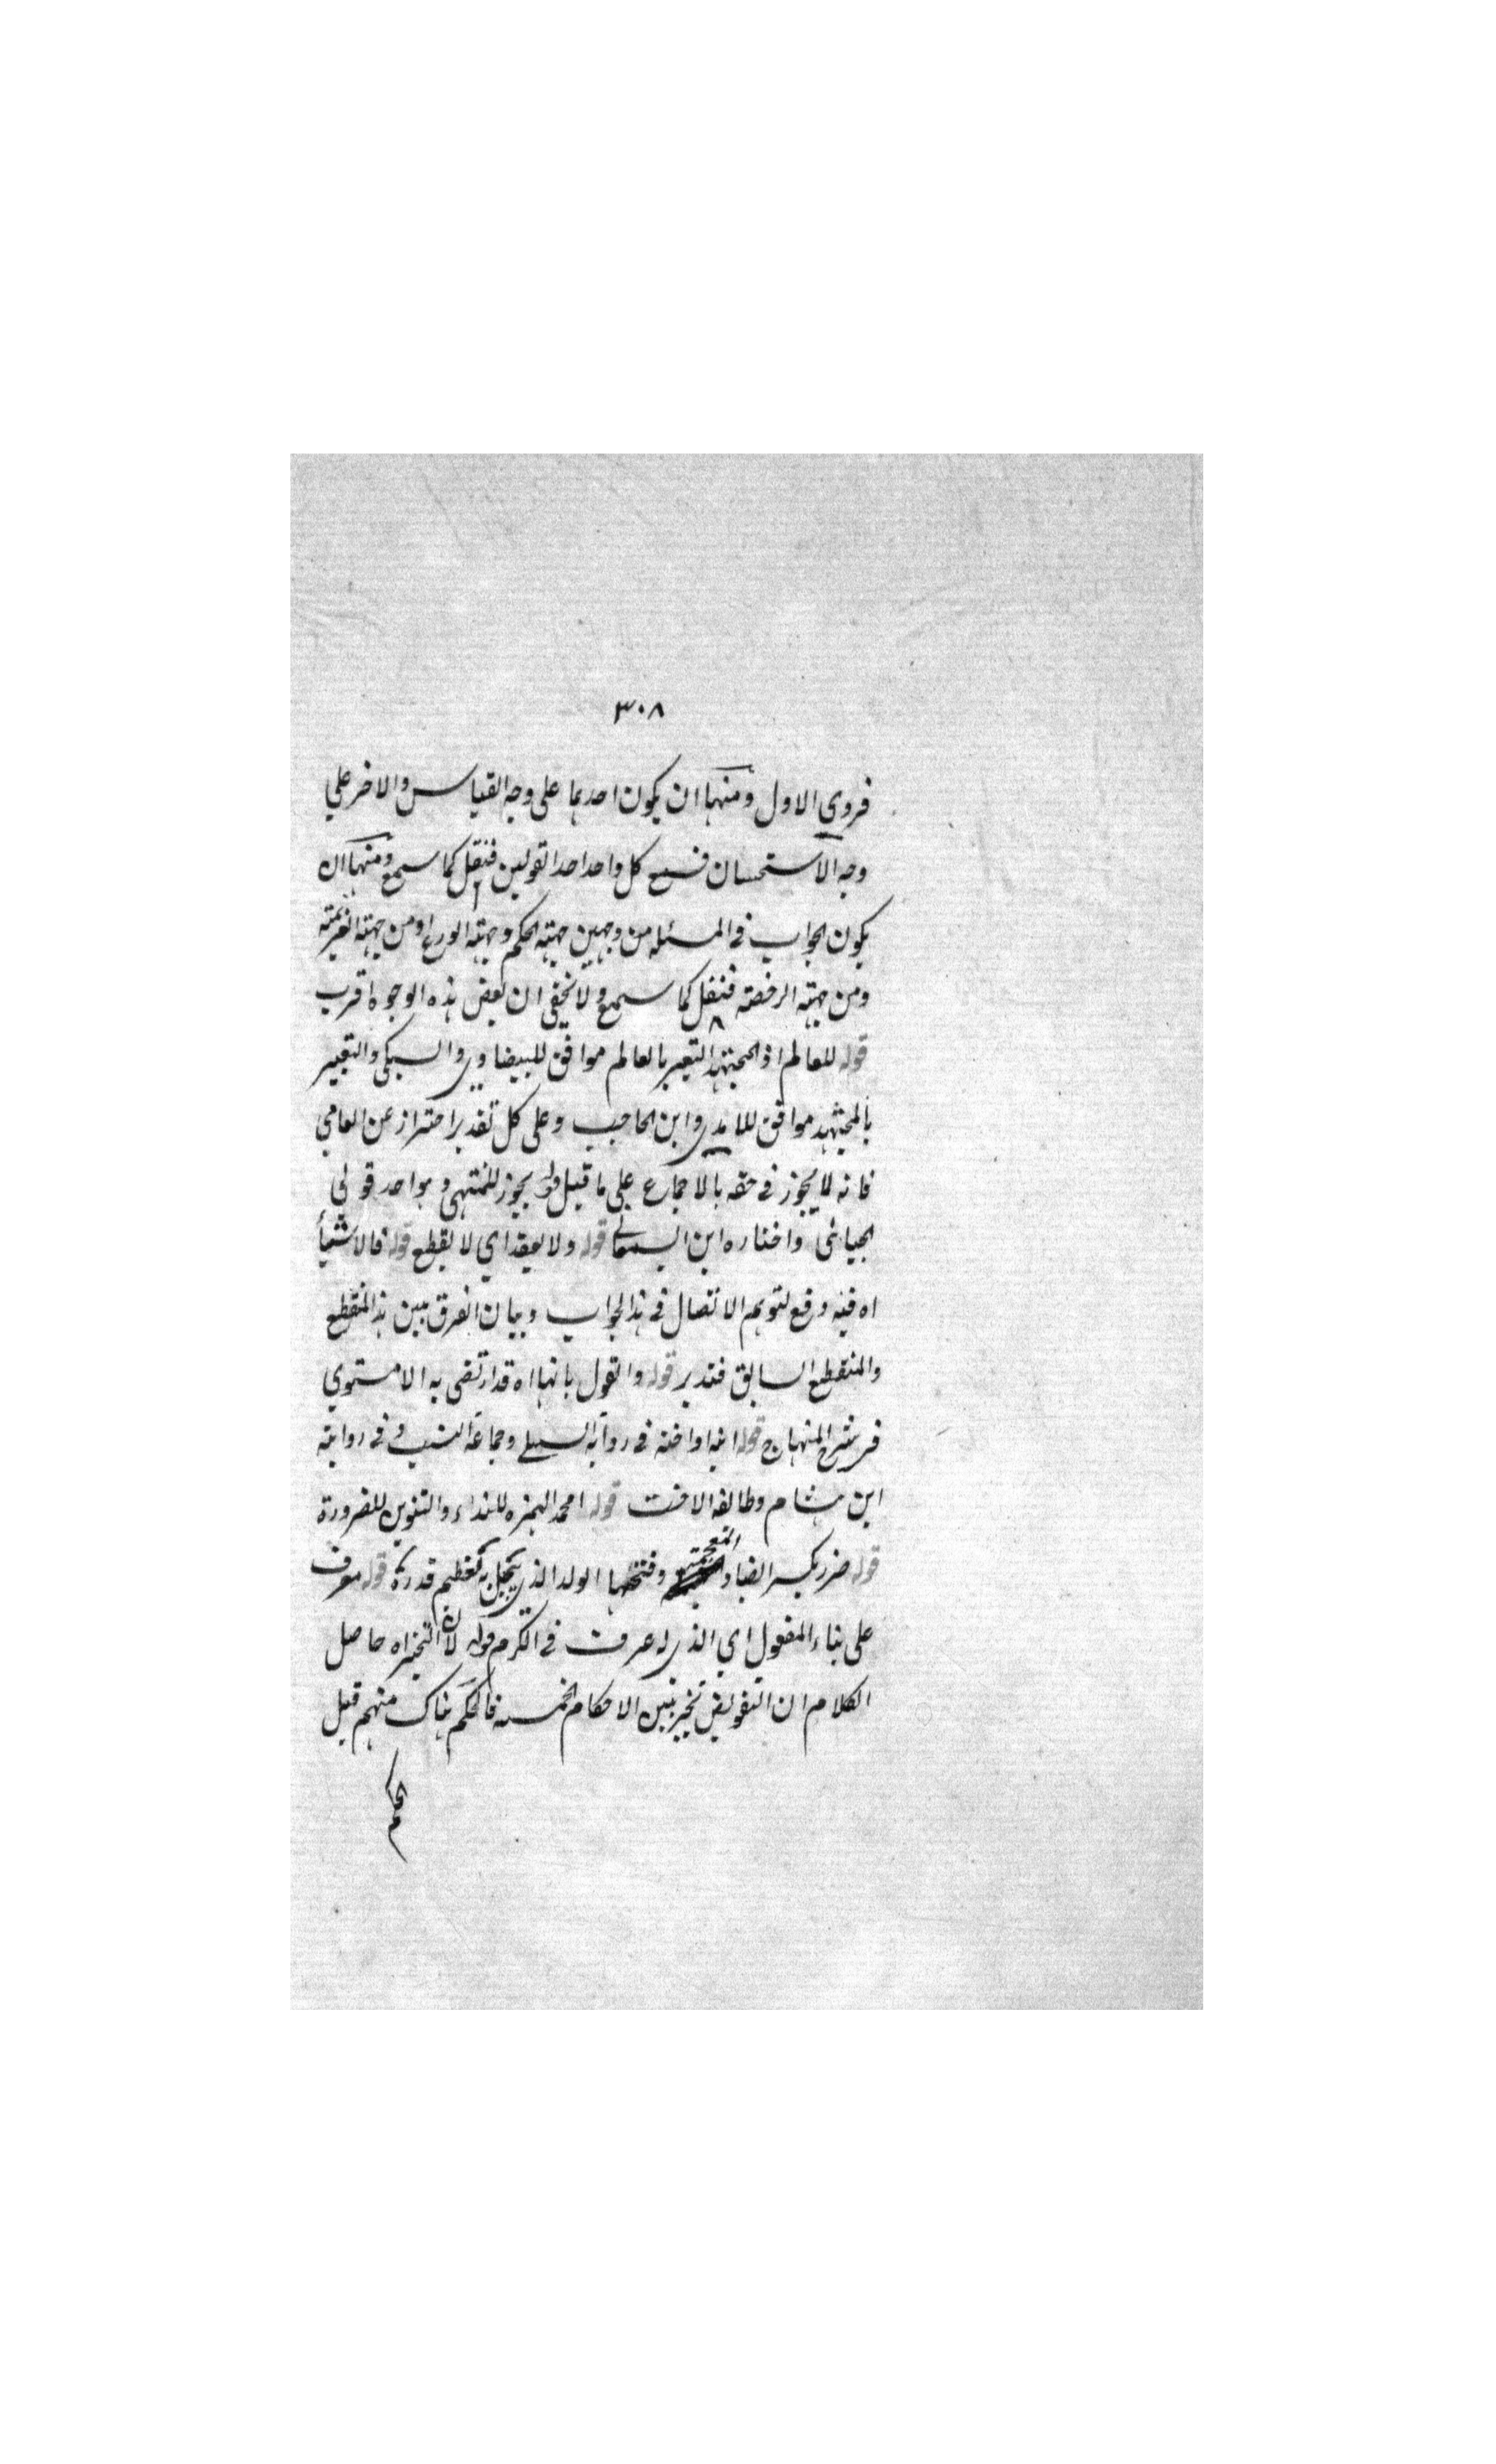 ٣٠٨
فروى الاول ومنها ان يكون احدهما على وجه القياس والاخر على
وجه الاستحسان فسمع كل واحد احد القولين فنقل كما سمع ومنها ان
يكون الجواب فى المسئلة من وجهين جهة الحكم وجهة الورع او من جهة العزيمة
ومن جهة الرخصة فنقل كما سمع ولا تخفى ان بعض هذه الوجوه اقرب
قوله للعالم اذ المجتهد التعبير بالعالم موافق للبيضاوى والسبكى والتعبير
بالمجتهد موافق للامدى وابن الحاجب وعلى كل تقدير احتراز عن العامي
فانه لا يجوز فى حقه بالاجماع على ما قيل يجوز للمنتهى وهو احد قولى
الجبائى واختاره ابن السمعانى قوله ولا يعقد اي لا يقطع قوله فالاشياء
اه فيه دفع لتوهم الاتصال فى هذا الجواب وبيان الفرق بين هذا المنقطع
والمنقطع السابق فتدبر قوله والقول بانها اه قد ارتضى به الاسنوي
فى شرح المنهاج قوله ابنه او اخته فى رواية السهيلى وجماعة البنت و فى رواية
ابن هشام وطائفة الاخت قوله امحمد الهمزه للنداء والتنوين للضرورة
قوله ضنؤ بكسر الضاد المعجمة وفتحها الولد الذى يبخل به لعظيم قدره قوله معرف
على بناء المفعول اي الذى له عرف فى الكرم قوله لان التخيراه حاصل
الكلام ان التفويض تخيير بين الاحكام الخمسة فالحكم هناك منهم قبل
الحكم